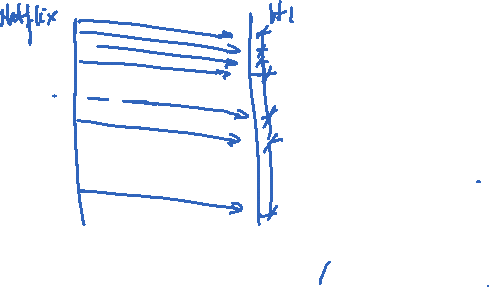 Netflix
H1